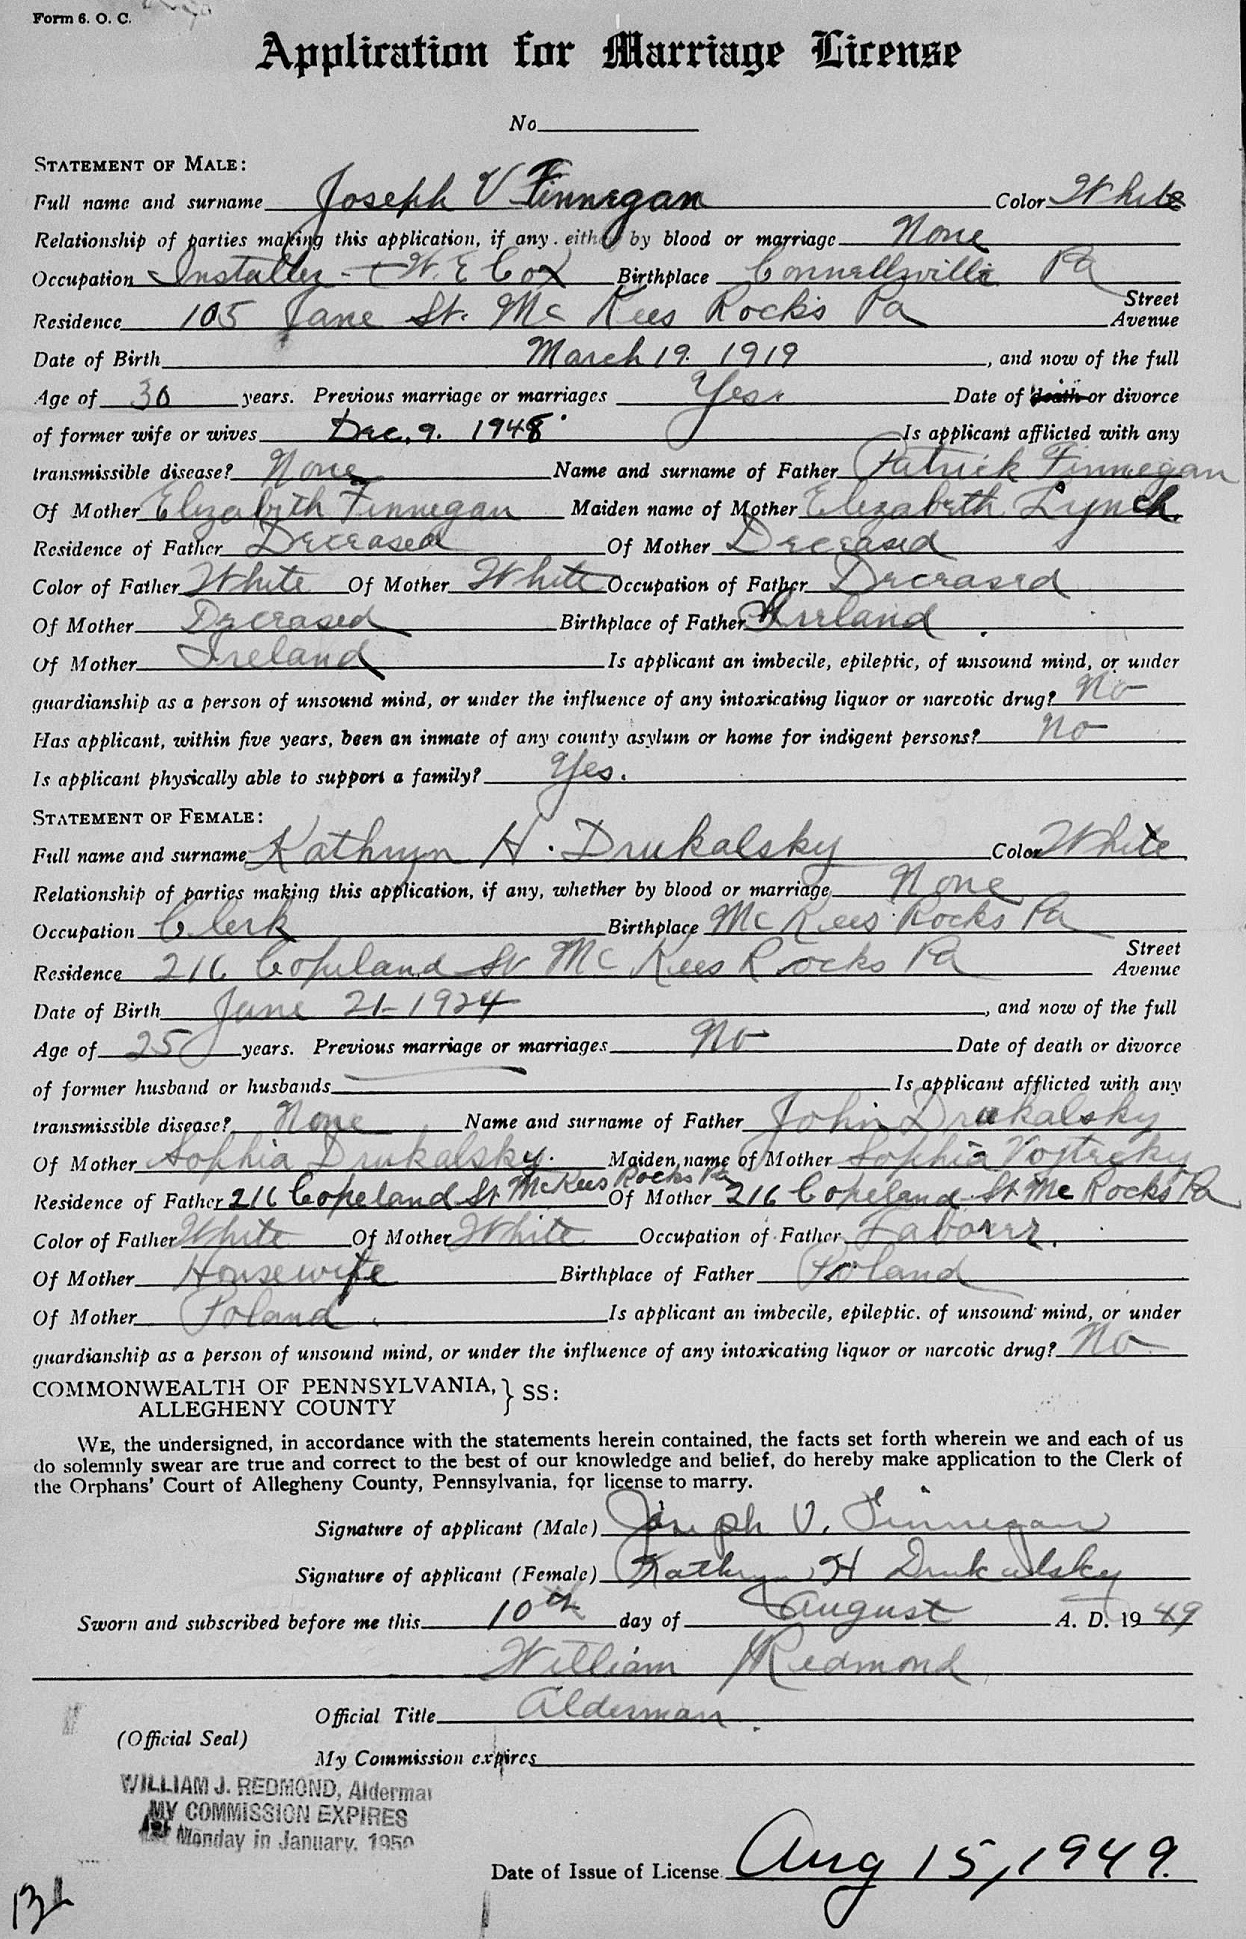 Form 6. O. C.
Application for Marriage License
No
STATEMENT OF MALE:
Full name and surname Joseph V Finnegan Color White
Relationship of parties making this application, if any. either by blood or marriage None
Occupation Installer - W. E Cox Birthplace Connellsville Pa
Residence 105 Jane St. Mc Kees Rocks Pa Street Avenue
Date of Birth March 19. 1919, and now of the full
Age of 30 years. Previous marriage or marriages Yes. Date of death or divorce
of former wife or wives Dec. 9. 1948 Is applicant afflicted with any
transmissible disease? None Name and surname of Father Patrick Finnegan
Of Mother Elizabeth Finnegan Maiden name of Mother Elizabeth Lynch
Residence of Father Deceased Of Mother Deceased
Color of Father White Of Mother White Occupation of Father Deceased
Of Mother Deceased Birthplace of Father Ireland
Of Mother Ireland Is applicant an imbecile, epileptic, of unsound mind, or under
guardianship as a person of unsound mind, or under the influence of any intoxicating liquor or narcotic drug? No
Has applicant, within five years, been an inmate of any county asylum or home for indigent persons? No
Is applicant physically able to support a family? Yes.
STATEMENT OF FEMALE:
Full name and surname Kathryn H. Drukalsky Color White
Relationship of parties making this application, if any, whether by blood or marriage None
Occupation Clerk Birthplace Mc Kees Rocks Pa
Residence 216 Copeland St Mc Kees Rocks Pa Street Avenue
Date of Birth June 21-1924, and now of the full
Age of 25 years. Previous marriage or marriages No Date of death or divorce
of former husband or husbands Is applicant afflicted with any
transmissible disease? None Name and surname of Father John Drukalsky
Of Mother Sophia Drukalsky. Maiden name of Mother Sophia
Residence of Father 216 Copeland St McKees Rocks Pa Of Mother 216 Copeland St Mc Rocks Pa
Color of Father White Of Mother White Occupation of Father Laborer.
Of Mother Housewife Birthplace of Father Poland
Of Mother Poland. Is applicant an imbecile, epileptic. of unsound mind, or under
guardianship as a person of unsound mind, or under the influence of any intoxicating liquor or narcotic drug? No
COMMONWEALTH OF PENNSYLVANIA, } SS:
ALLEGHENY COUNTY
WE, the undersigned, in accordance with the statements herein contained, the facts set forth wherein we and each of us
do solemnly swear are true and correct to the best of our knowledge and belief, do hereby make application to the Clerk of
the Orphans' Court of Allegheny County, Pennsylvania, for license to marry.
Signature of applicant (Male) Joseph V. Finnegan
Signature of applicant (Female) Kathryn H Drukalsky
Sworn and subscribed before me this 10th day of August A. D. 1949
William Redmond
Official Title Alderman.
(Official Seal)
My Commission expires
WILLIAM J. REDMOND, Alderman
MY COMMISSION EXPIRES
1st Monday in January, 1950
Date of Issue of License Aug 15, 1949.